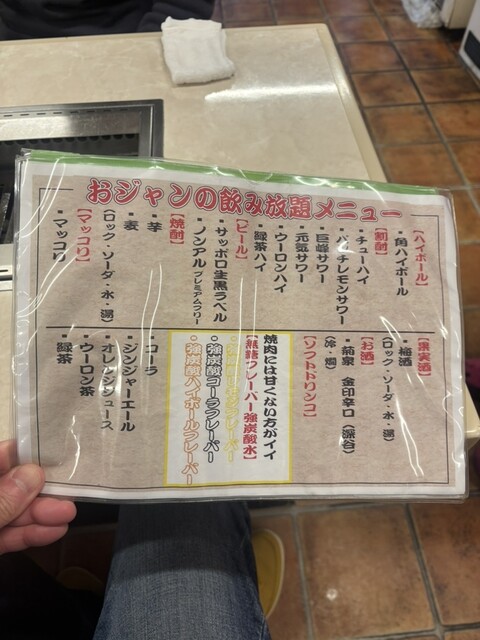 おジャンの飲み放題メニュー
【ハイボール】
・角ハイボール
【割酎】
・チューハイ
・バイチレモンサワー
・巨峰サワー
・元気サワー
・ウーロンハイ
・緑茶ハイ
【ビール】
・サッポロ生黒ラベル
・ノンアル プレミアムフリー
【焼酎】
・芋
・麦
（ロック・ソーダ・水・湯）
【マッコリ】
・マッコリ
【果実酒】
・梅酒
（ロック・ソーダ・水・湯）
【お酒】
・菊泉 金印辛口（深谷）
（冷・燗）
【ソフトドリンク】
焼肉には甘くない方がイイ
【無糖フレーバー強炭酸水】
・強炭酸レモンフレーバー
・強炭酸コーラフレーバー
・強炭酸ハイボールフレーバー
・コーラ
・ジンジャーエール
・オレンジジュース
・ウーロン茶
・緑茶